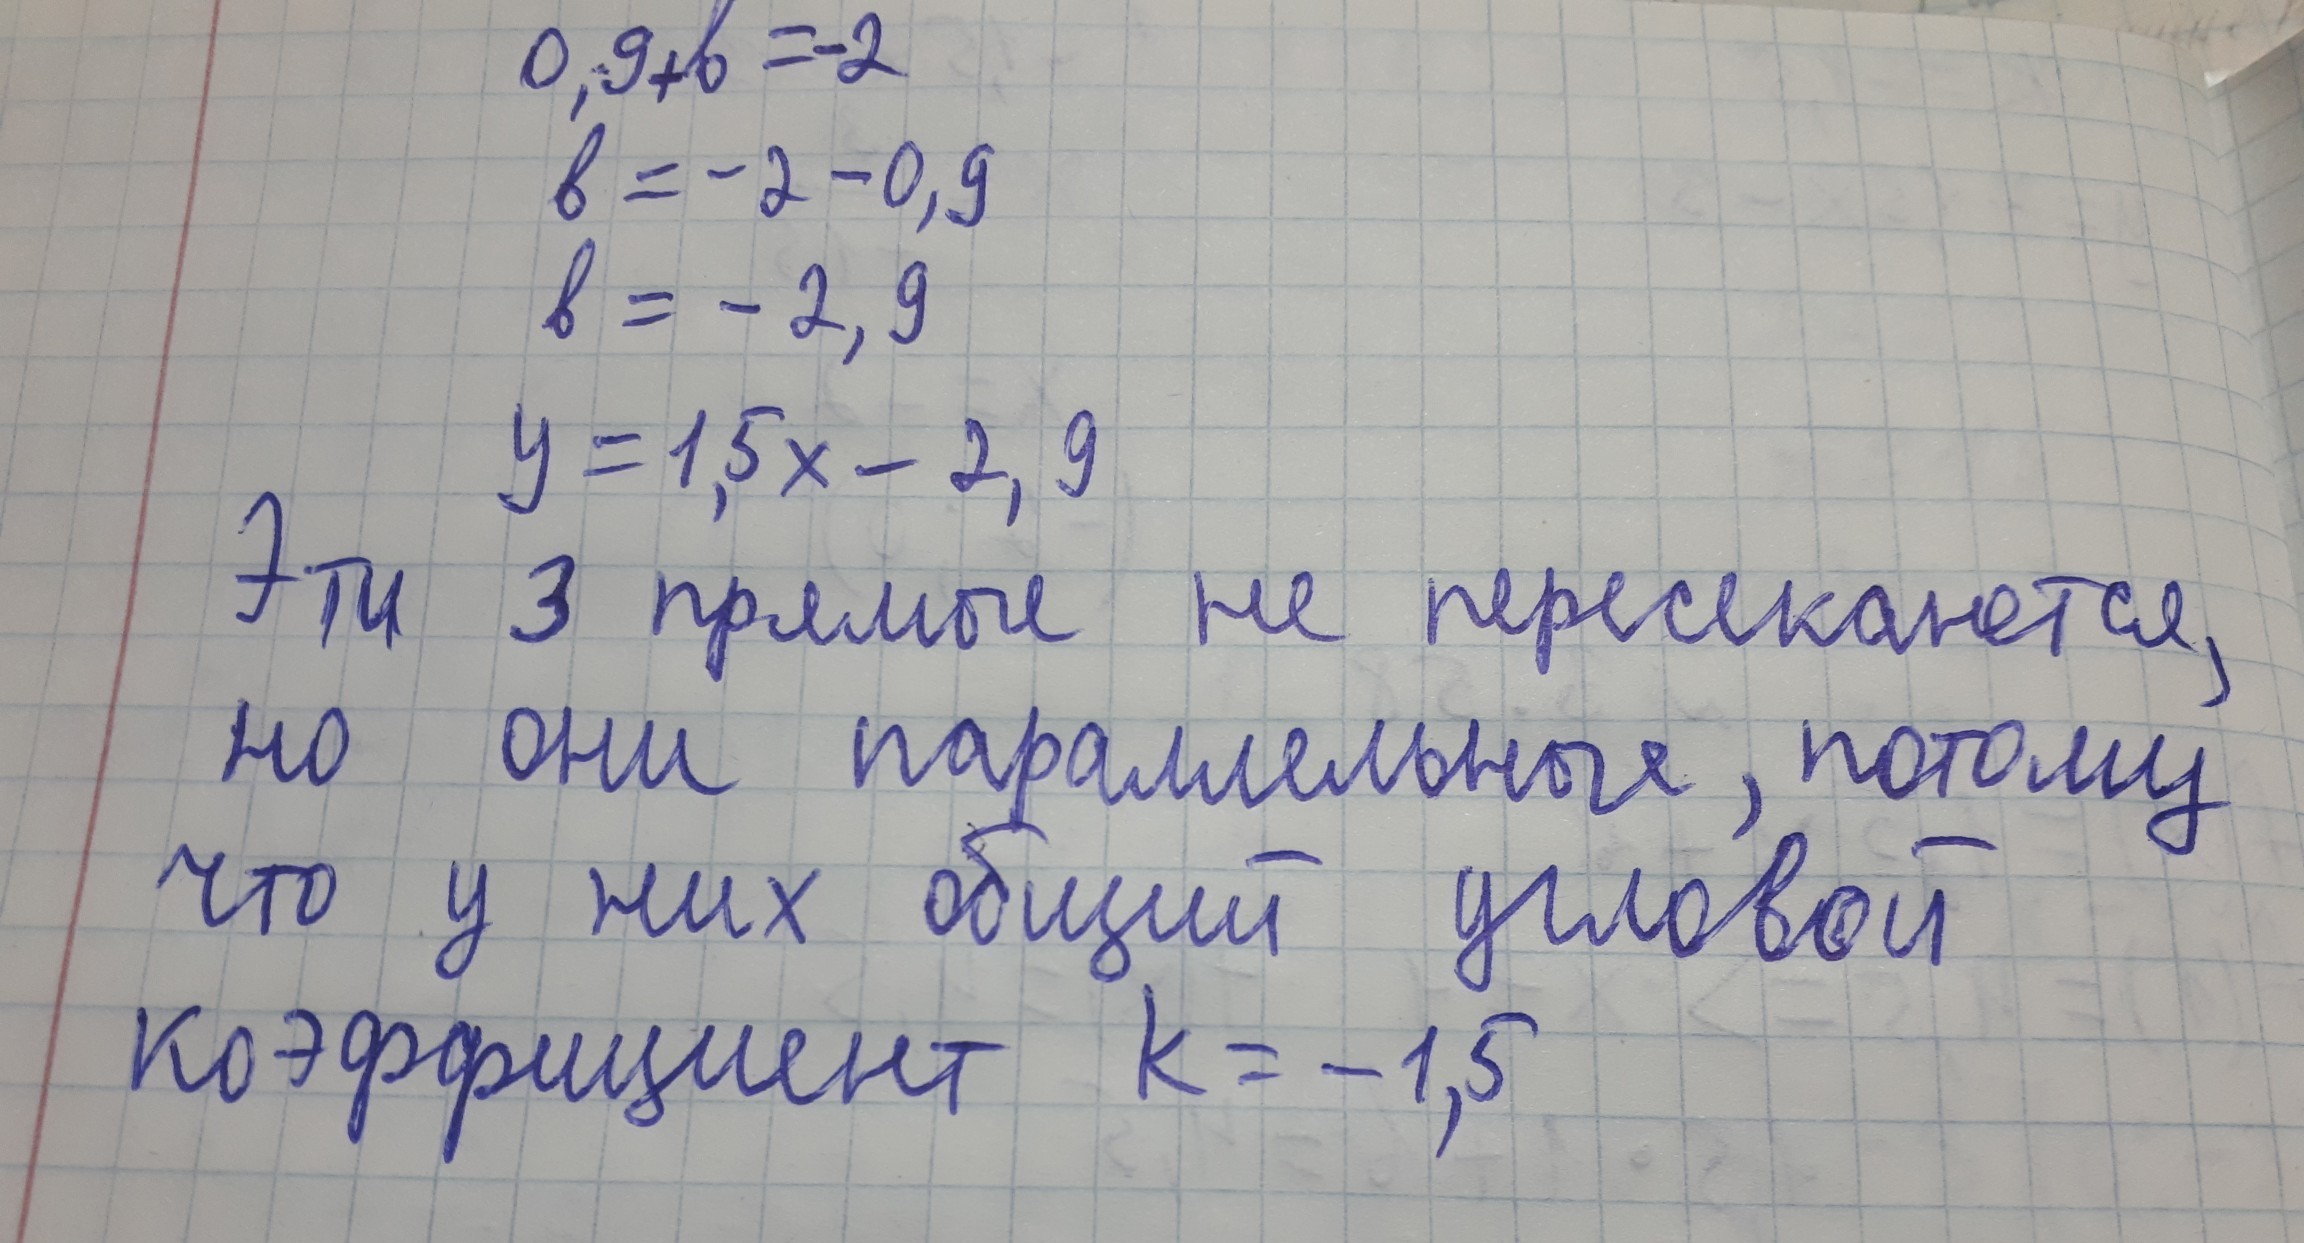 0,9+b=-2
b=-2-0,9
b=-2,9
y=1,5x-2,9
Эти 3 прямые не пересекаются,
но они параллельные, потому
что у них общий угловой
коэффициент k=-1,5